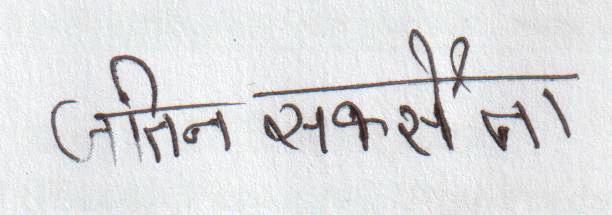 जतिन सकसैना